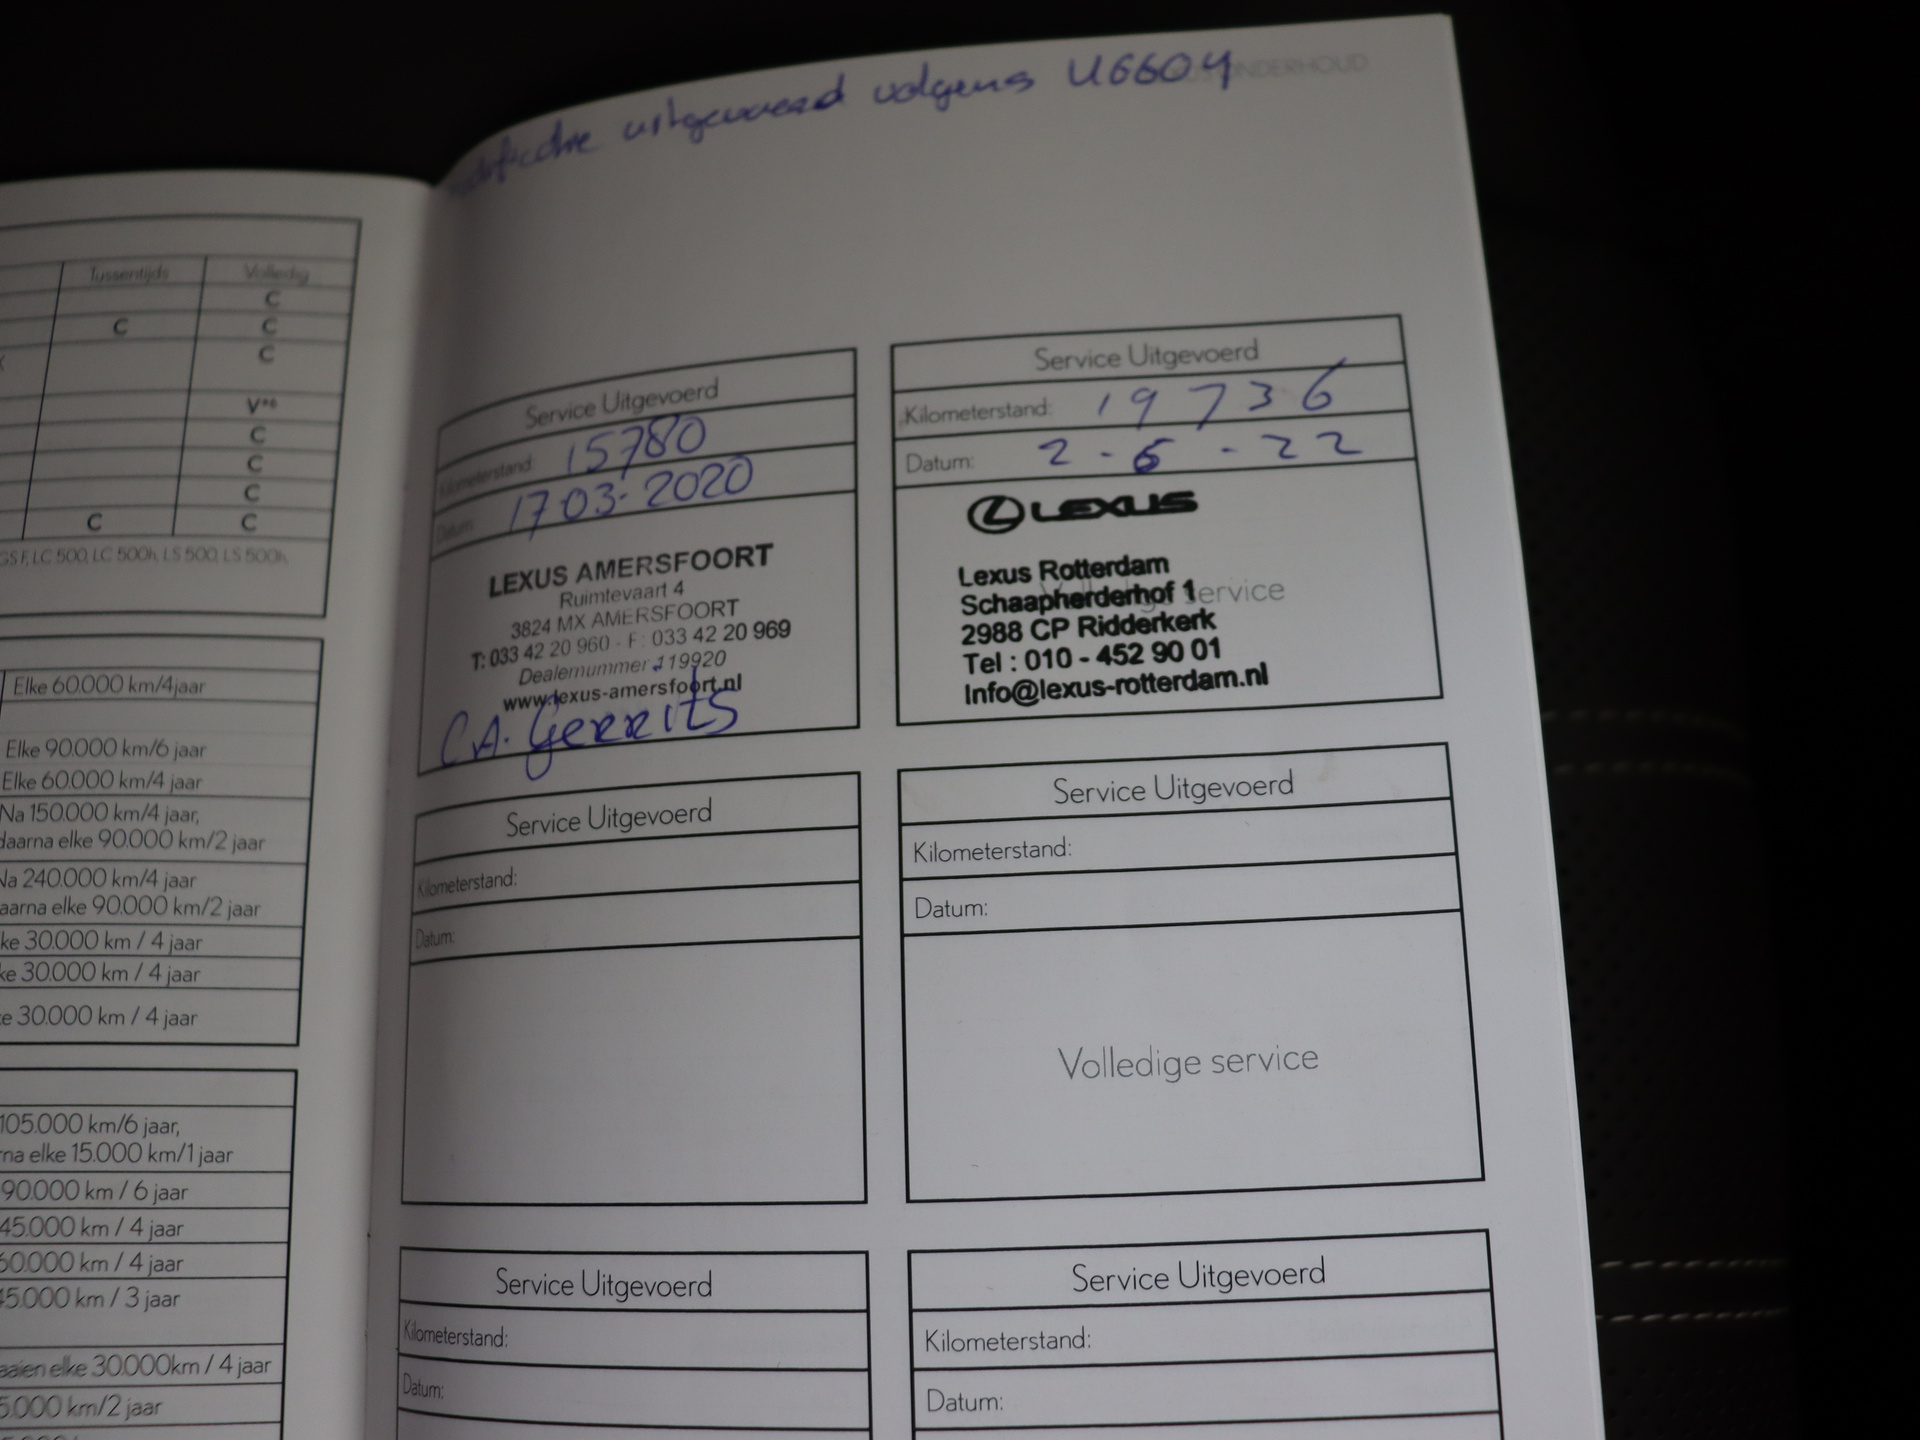 uitgevoerd volgens U6604
ONDERHOUD
Tussentijds Volledig
C
C C
C
V*6
C
C
C
C C
GS F, LC 500, LC 500h, LS 500, LS 500h,
Elke 60.000 km/4jaar
Elke 90.000 km/6 jaar
Elke 60.000 km/4 jaar
Na 150.000 km/4 jaar,
daarna elke 90.000 km/2 jaar
Na 240.000 km/4 jaar
aarna elke 90.000 km/2 jaar
ke 30.000 km / 4 jaar
ke 30.000 km / 4 jaar
e 30.000 km / 4 jaar
105.000 km/6 jaar,
rna elke 15.000 km/1 jaar
90.000 km / 6 jaar
45.000 km / 4 jaar
60.000 km / 4 jaar
45.000 km / 3 jaar
aaien elke 30.000km / 4 jaar
5.000 km/2 jaar
Service Uitgevoerd
Kilometerstand: 15780
Datum: 17-03-2020
LEXUS AMERSFOORT
Ruimtevaart 4
3824 MX AMERSFOORT
T: 033 42 20 960 - F: 033 42 20 969
Dealernummer 119920
www.lexus-amersfoort.nl
C.A. Gerrits
Service Uitgevoerd
Kilometerstand: 19736
Datum: 2-6-22
LEXUS
Lexus Rotterdam
Schaapherderhof 1 service
2988 CP Ridderkerk
Tel : 010 - 452 90 01
Info@lexus-rotterdam.nl
Service Uitgevoerd
Kilometerstand:
Datum:
Service Uitgevoerd
Kilometerstand:
Datum:
Volledige service
Service Uitgevoerd
Kilometerstand:
Datum:
Service Uitgevoerd
Kilometerstand:
Datum: